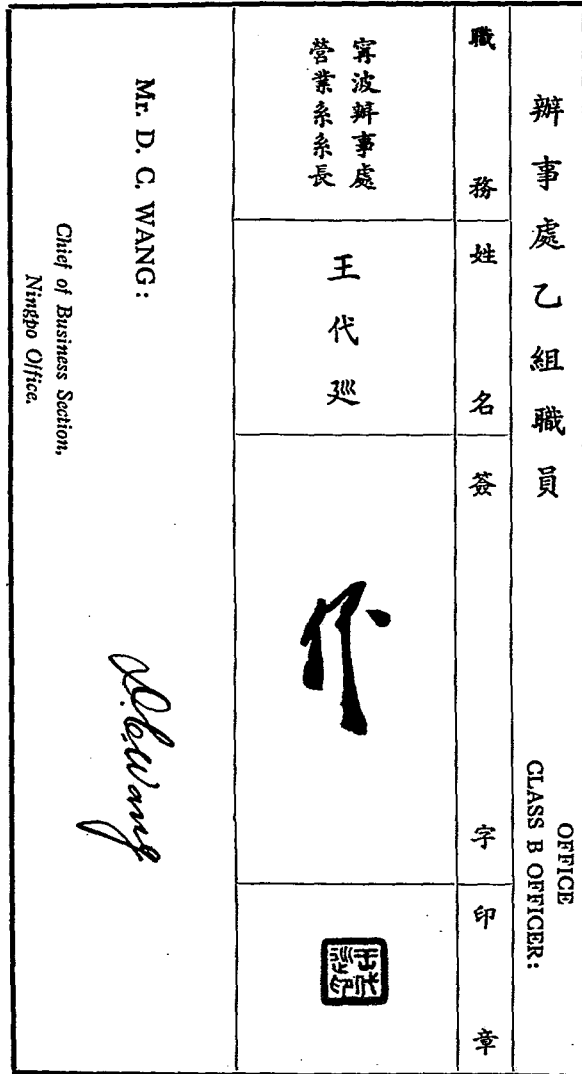 辦事處乙組職員
OFFICE
CLASS B OFFICER:
職務
姓名
簽字
印章
寗波辦事處
營業系系長
王代廵
王代廵印
Mr. D. C. WANG:
Chief of Business Section,
Ningpo Office.
D.C.Wang